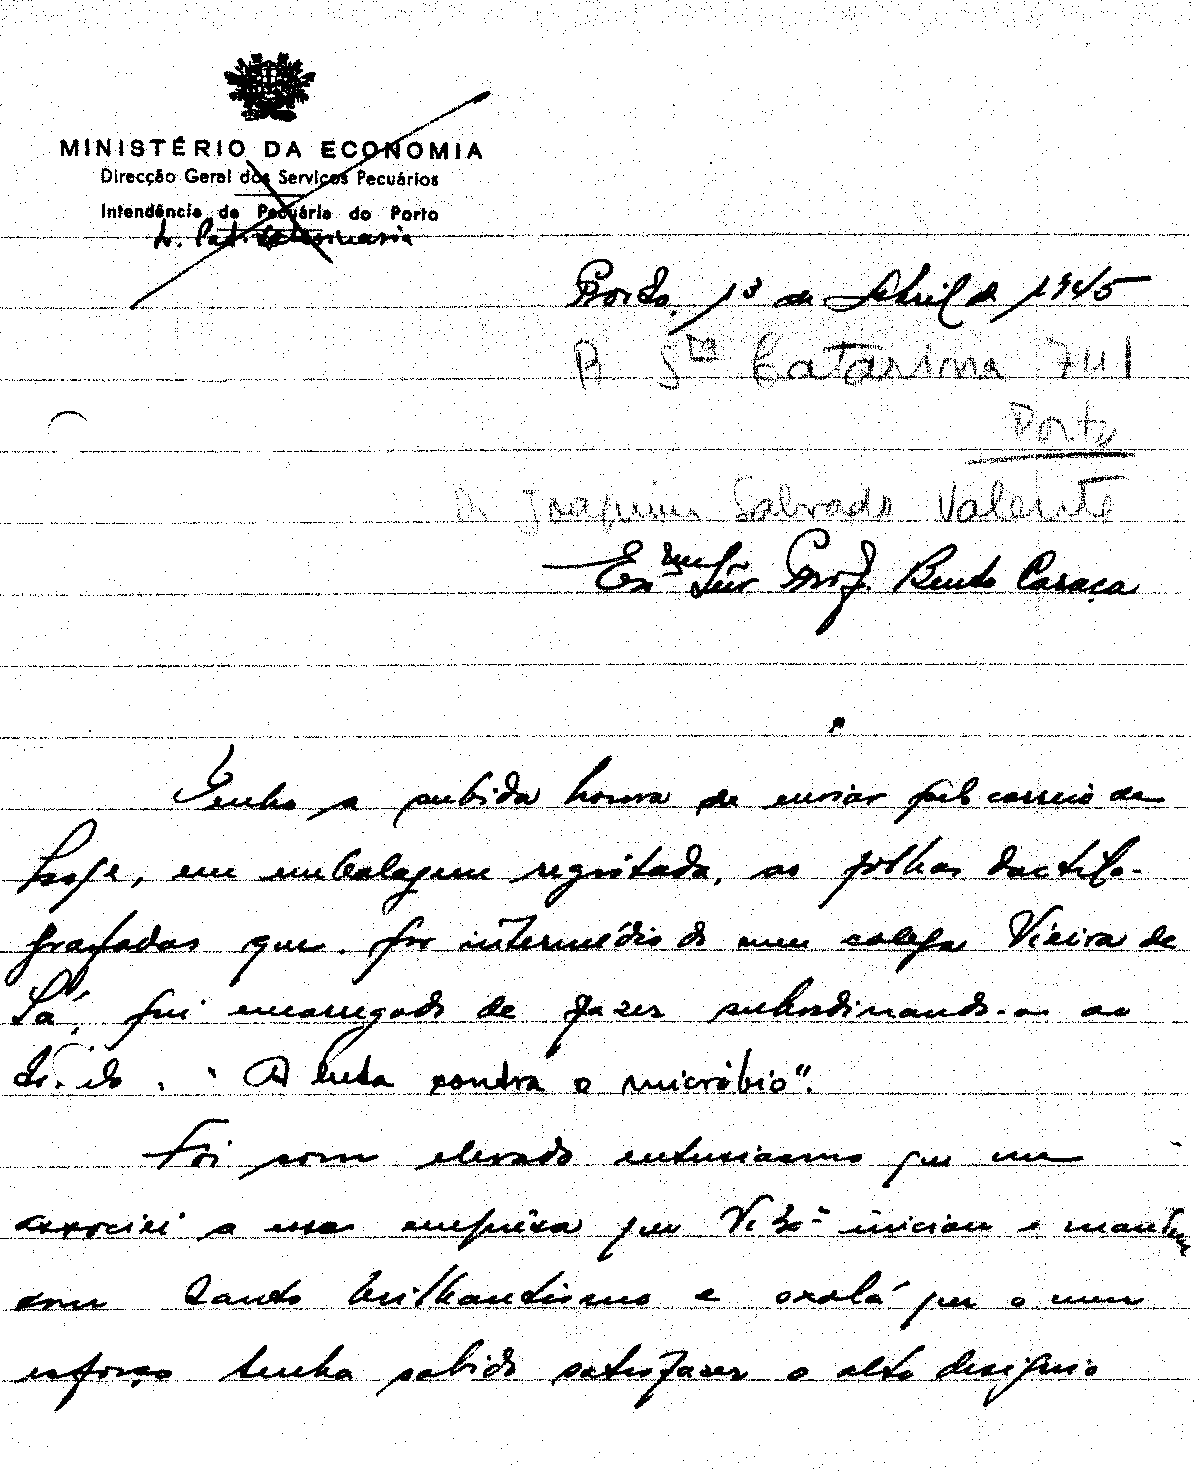 MINISTÉRIO DA ECONOMIA
Direcção Geral dos Serviços Pecuários
Intendência de Pecuária do Porto
Porto, 13 de Abril de 1945
R Sta Catarina 741
Porto
Dr Joaquim Salvado Valente
Exmo Snr Prof. Bento Caraça
Tenho a subida honra de enviar pelo correio de
hoje, em embalagem registada, as folhas dactilo-
grafadas que, por intermédio do meu colega Vieira de
Sá, fui encarregado de fazer subordinando-as ao
"A luta contra o micróbio".
Foi com elevado entusiasmo que me
associei a essa emprêsa que iniciou e mantem
com tanto brilhantismo e oxalá que o meu
esforço tenha sabido satisfazer o alto desígnio